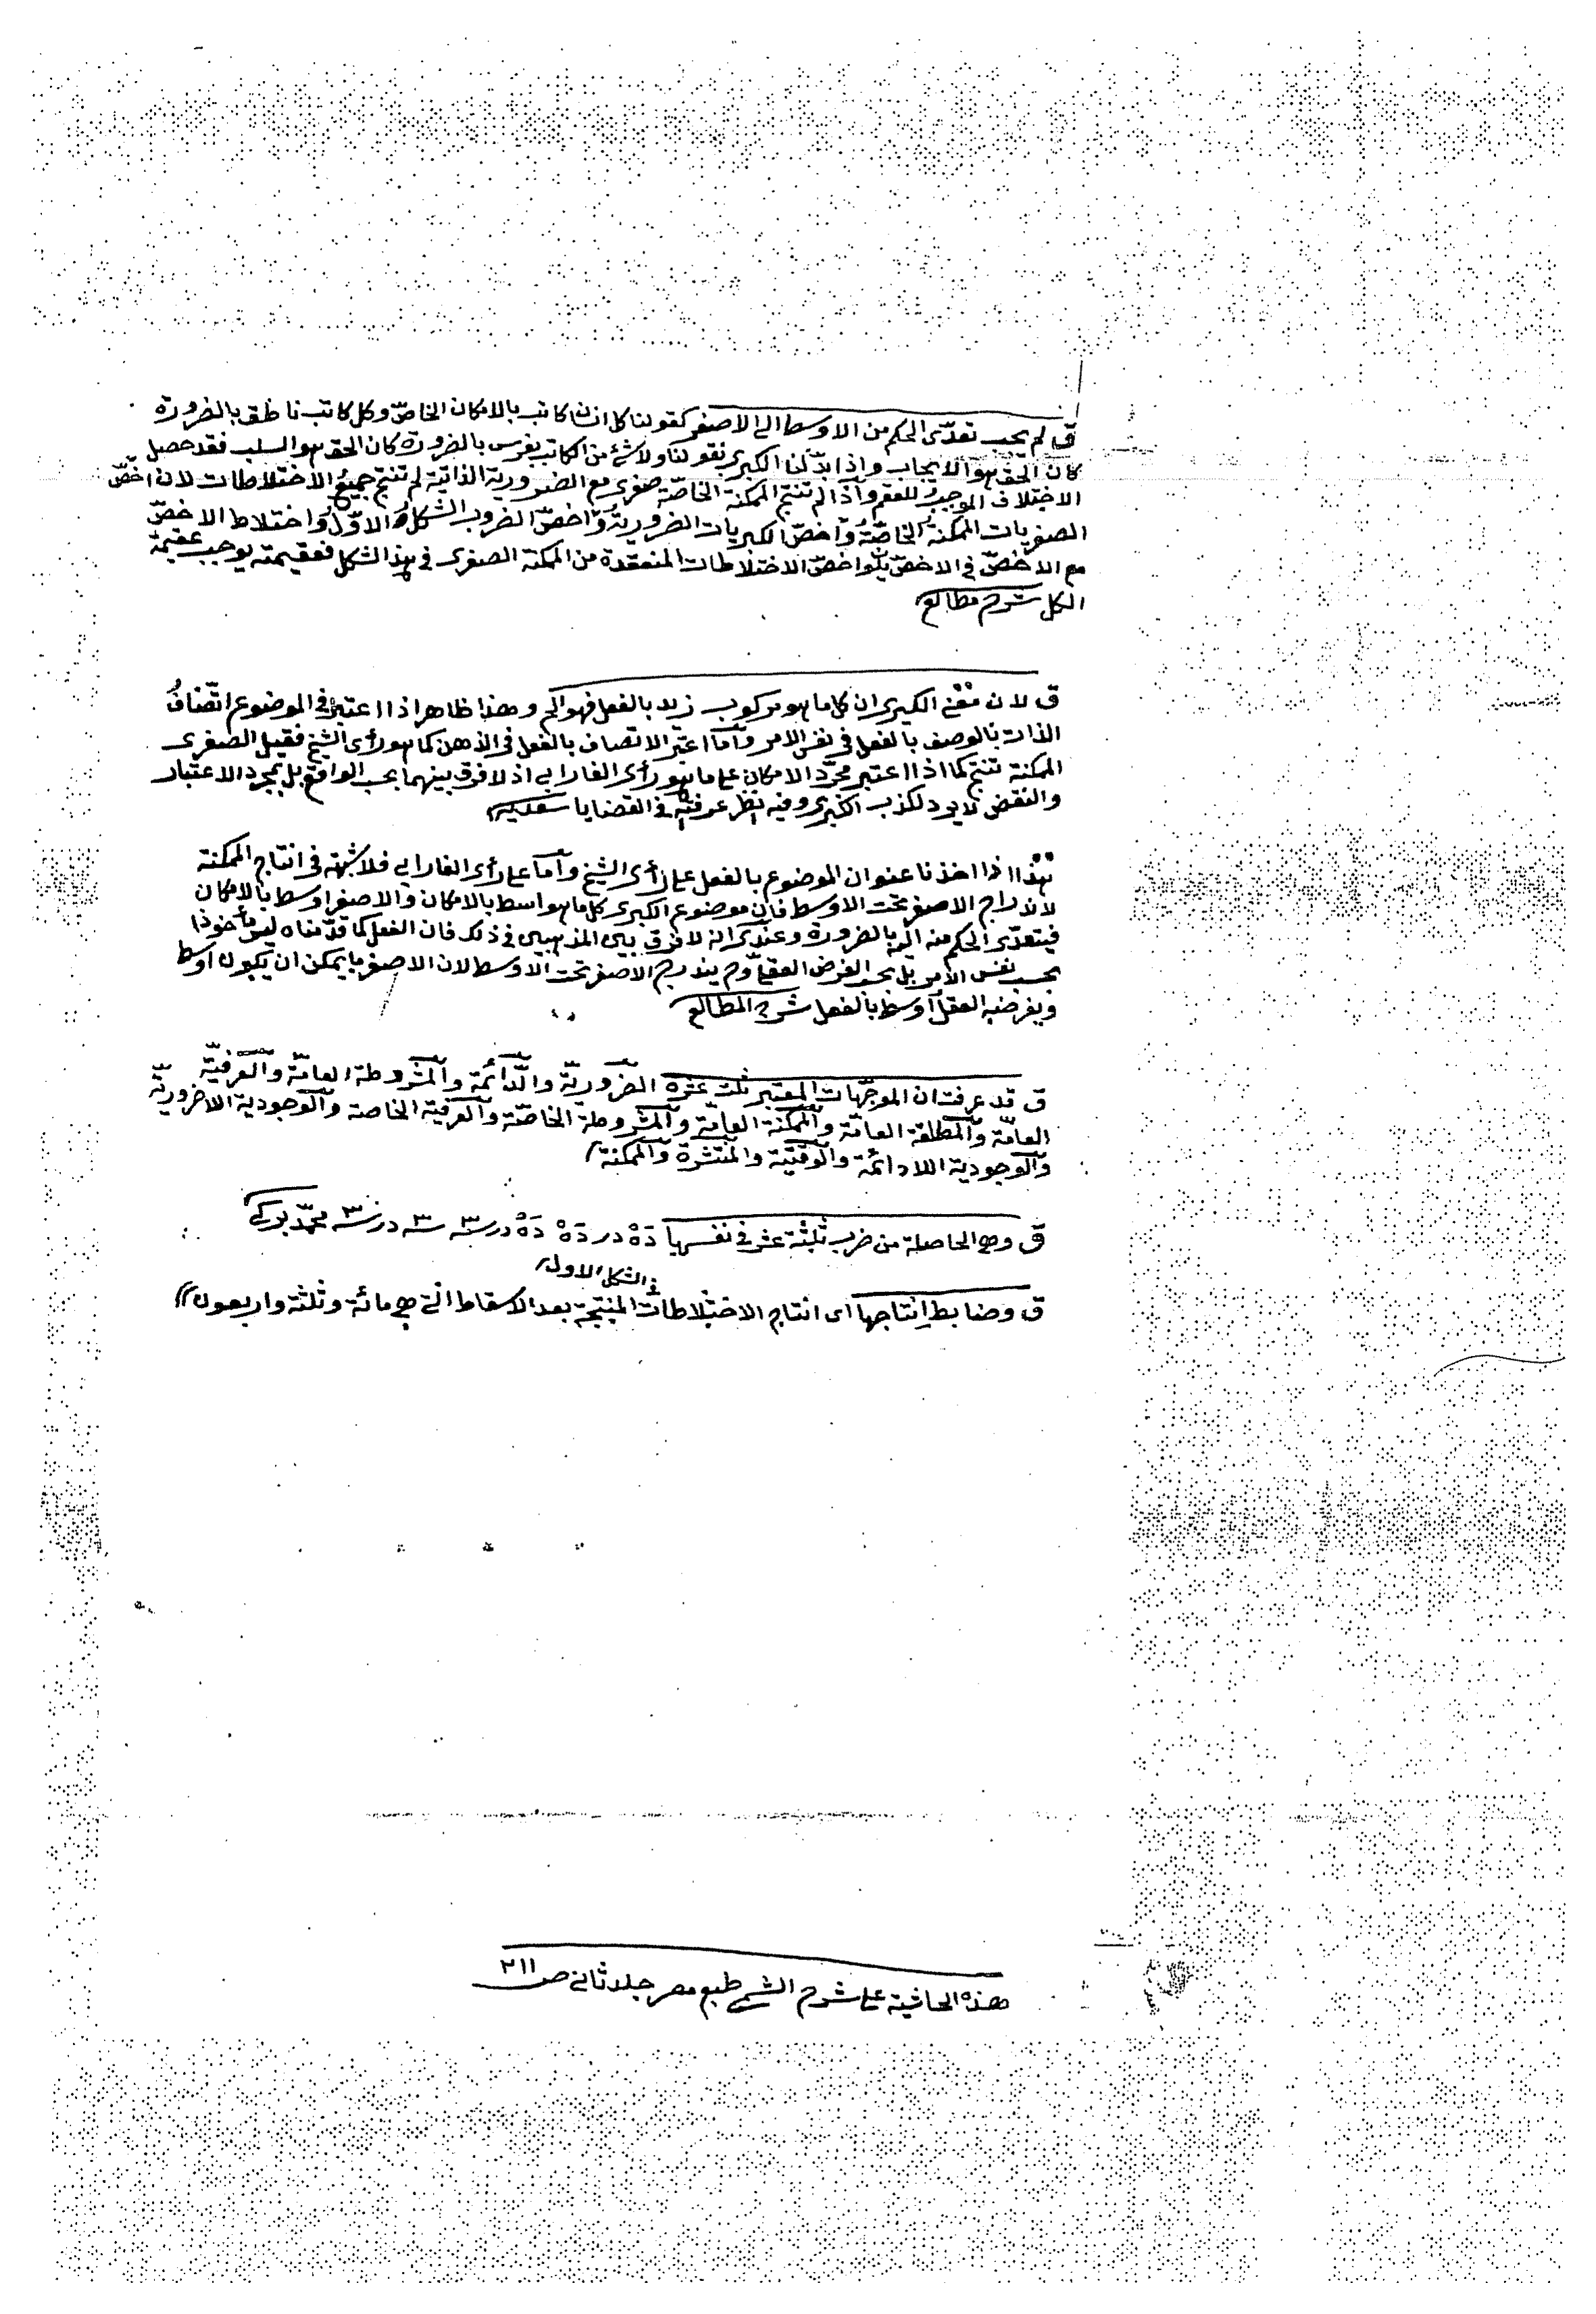 ق لم يجب تعدّى الحكم من الاوسط الى الاصغر كقولنا كل انسان كاتب بالامكان الخاصّ وكل كاتب ناطق بالضرورة
كان الحقّ هو الايجاب واذا بدّلنا الكبرى بقولنا ولا شئ من الكاتب بفرس بالضرورة كان الحق هو السلب فقد حصل
الاختلاف الموجب للعقم واذا لم تنتج الممكنة الخاصّة صغرى مع الضرورية الذاتية لم تنتج جميع الاختلاطات لان اخصّ
الصغريات الممكنة الخاصّة واخصّ الكبريات الضرورية واخصّ الضروب الشكل الاوّل واختلاط الاخصّ
مع الاخصّ فى الاخصّ اخصّ الاختلاطات المنعقدة من الممكنة الصغرى فى هذا الشكل فعقيمته يوجب عقيمة
الكل شرح مطالع
ق لان معنى الكبرى ان كل ما هو مركوب زيد بالفعل فهو الخ وهذا ظاهر اذا اعتبر فى الموضوع اتّصافُ
الذات بالوصف بالفعل فى نفس الامر وامّا اعتبر الاتصاف بالفعل فى الذهن كما هو رأى الشيخ فقيل الصغرى
الممكنة تنتج كما اذا اعتبر مجرّد الامكان على ما هو رأى الفارابى اذ لا فرق بينهما بحسب الواقع بل بمجرد الاعتبار
والنقض لا يرد لكذب الكبرى وفيه نظر عرفته فى القضايا سعديه
هذا اذا اخذنا عنوان الموضوع بالفعل على رأى الشيخ وامّا على رأى الفارابى فلا شبهة فى انتاج الممكنة
لاندراج الاصغر تحت الاوسط فان موضوع الكبرى كل ما هو اوسط بالامكان والاصغر اوسط بالامكان
فيتعدّى الحكم منه اليه بالضرورة وعندى انه لا فرق بين المذهبين فى ذلك فان الفعل كما قدّمناه ليس مأخوذا
بحسب نفس الامر بل بحسب الفرض العقلى وح يندرج الاصغر تحت الاوسط لان الاصغر ما يمكن ان يكون اوسط
ويفرضه العقل اوسط بالفعل شرح المطالع
ق قد عرفت ان الموجّهات المعتبر ثلث عشرة الضروريّة والدّائمة والمشروطة العامّة والعرفيّة
العامّة والمطلقة العامّة والممكنة العامّة والمشروطة الخاصّة والعرفية الخاصة والوجودية اللاضروريّة
والوجودية اللادائمة والوقتيّة والمنتشرة والممكنة
ق وهى الحاصلة من ضرب ثلثة عشر فى نفسها دَهْ در دَهْ دَهْ در ٣ ٣ در ٣ محمّد بركى
فى الشكل الاول
ق وضابط انتاجها اى انتاج الاختلاطات المنتجة بعد الاسقاط التى هى مائة وثلثة واربعون
هذه الحاشية على شرح الشمسى طبع مصر جلد ثانى ص ٢١١